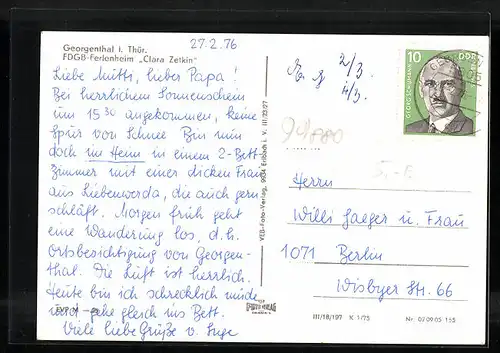 27.2.76
Georgenthal i. Thür.
FDGB-Ferienheim „Clara Zetkin“
Liebe Mutti, lieber Papa!
Bei herrlichem Sonnenschein
um 15 30 angekommen, keine
Spur von Schnee. Bin nun
doch im Heim in einem 2-Bett
Zimmer mit einer dicken Frau
aus Liebenwerda, die auch gern
schläft. Morgen früh geht
eine Wanderung los, d.h.
Ortsbesichtigung von Georgen-
thal. Die Luft ist herrlich.
Heute bin ich schrecklich müde
und gehe gleich ins Bett.
Viele liebe Grüße v. Inge
VEB-Foto-Verlag, 9934 Erlbach i. V. III/23/27
2/3.
4/3.
10
DDR
GEORG SCHUMANN
Herrn
Willi Jaeger u. Frau
1071 Berlin
Wisbyer Str. 66
III/18/197 K 1/75
Nr. 07 09 05 155